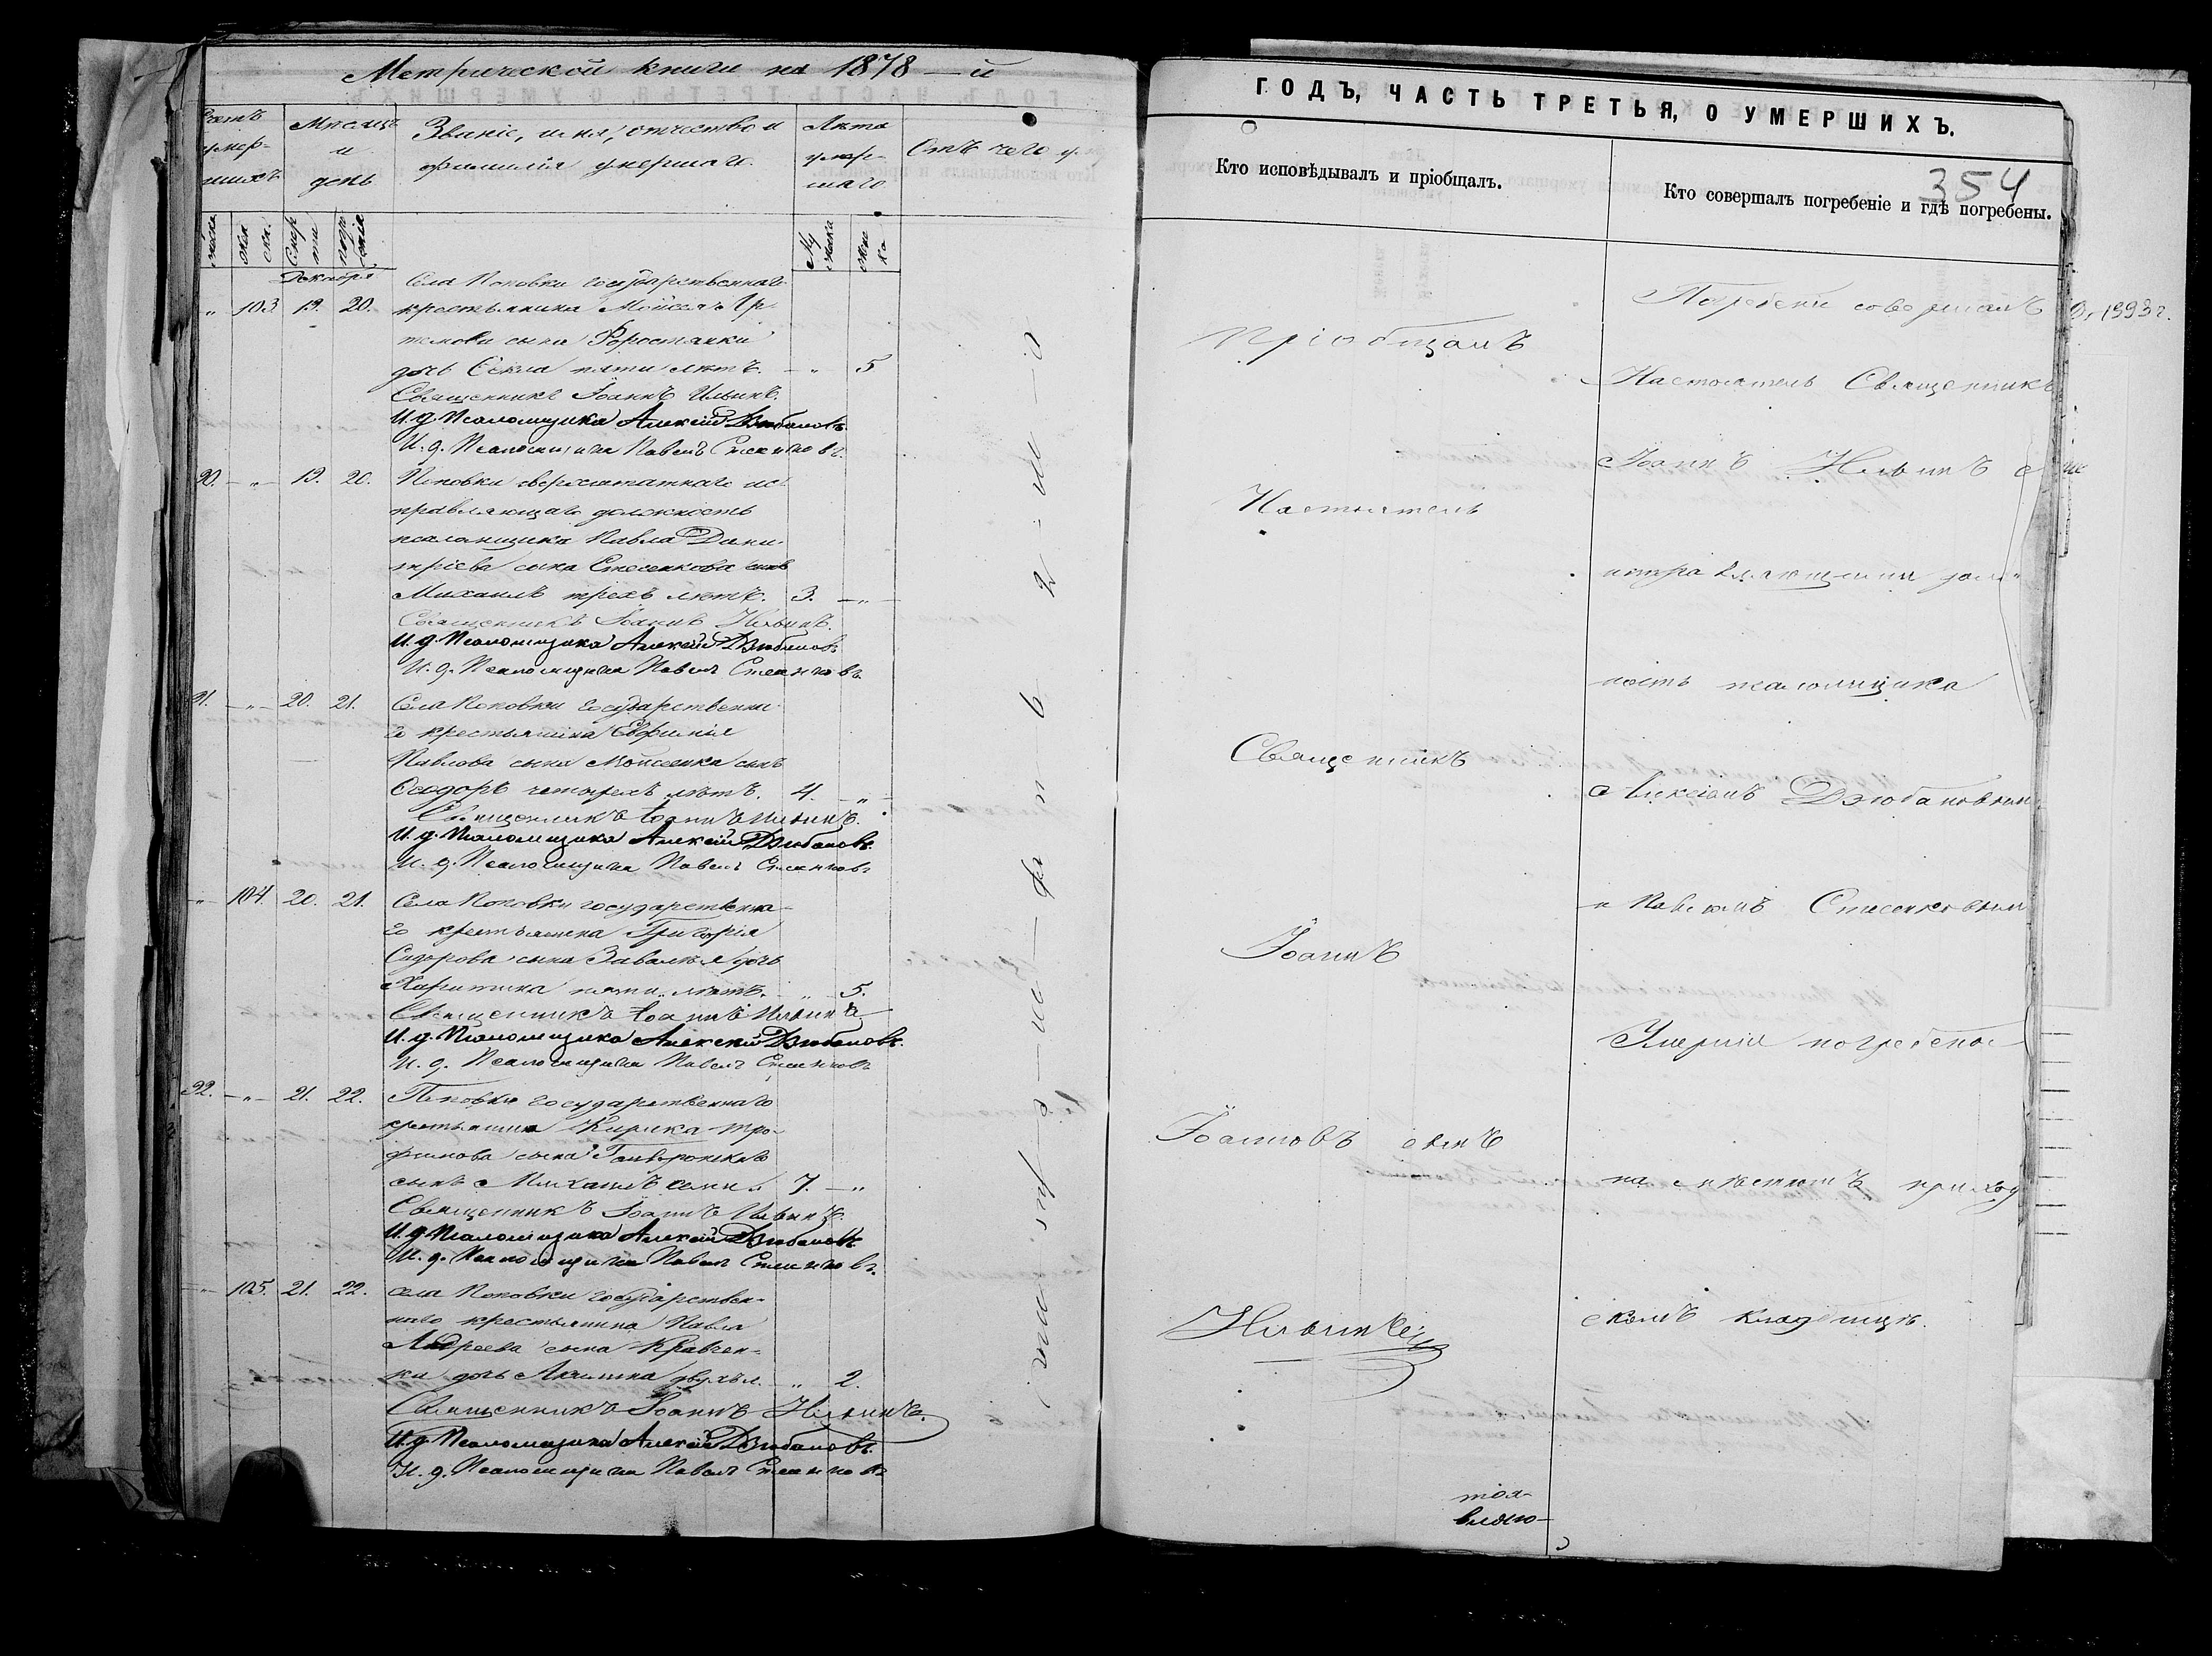 Метрической книги на 1878-й
Счетъ умер-шихъ
Мѣсяцъ и день
Званіе, имя, отчество и
фамилія умершаго.
Лѣта умер-шаго
Отъ чего
Декабря
Села Поповки государственнаго
" 103. 19. 20. крестьянина Моисея Ар-
темова сына Форостянки
дочь Ѳекла пяти лѣтъ. " 5
Священникъ Іоаннъ Ильинъ.
И. д. Псаломщика Алексій Дзюбановъ.
И. д. Псаломщика Павелъ Стесенковъ.
90. " 19. 20. Поповки сверхштатнаго ис-
правляющаго должность
псаломщика Павла Дими-
тріева сына Стесенкова сынъ
Михаилъ трехъ лѣтъ. 3. "
Священникъ Іоаннъ Ильинъ.
И. д. Псаломщика Алексій Дзюбановъ
И. д. Псаломщика Павелъ Стесенковъ.
91. " 20. 21. Села Поповки государственна-
го крестьянина Евфимія
Павлова сына Мойсеенка сынъ
Ѳеодоръ четырехъ лѣтъ. 4. "
Священникъ Іоаннъ Ильинъ.
И. д. Псаломщика Алексій Дзюбановъ.
И. д. Псаломщика Павелъ Стесенковъ
" 104. 20. 21. Села Поповки государственна-
го крестьянина Григорія
Сидорова сына дочь
Харитина пяти лѣтъ. " 5.
Священникъ Іоаннъ Ильинъ
И. д. Псаломщика Алексій Дзюбановъ.
И. д. Псаломщика Павелъ Стесенковъ
92. " 21. 22. Поповки государственнаго
крестьянина Кирика Тро-
фимова сына
сынъ Михаилъ семи л. 7. "
Священникъ Іоаннъ Ильинъ.
И. д. Псаломщика Алексій Дзюбановъ.
И. д. Псаломщика Павелъ Стесенковъ.
" 105. 21. 22. Села Поповки государствен-
наго крестьянина Павла
Андреева сына Кравчен-
ки дочь Акилина двухъ л. " 2.
Священникъ Іоаннъ Ильинъ.
И. д. Псаломщика Алексій Дзюбановъ.
И. д. Псаломщика Павелъ Стесенковъ
ГОДЪ, ЧАСТЬ ТРЕТЬЯ, О УМЕРШИХЪ.
354
Кто исповѣдывалъ и пріобщалъ.
Кто совершалъ погребеніе и гдѣ погребены.
Пріобщалъ
Настоятель
Священникъ
Іоаннъ
Іоанновъ сынъ
Ильинъ
Погребеніе совершалъ
Настоятель Священникъ
Іоаннъ Ильинъ съ ис
правляющими долж
ность псаломщика
Алексіемъ Дзюбановымъ
и Павломъ Стесенковымъ
Умершіе погребены
на мѣстномъ приход
скомъ кладбищѣ.